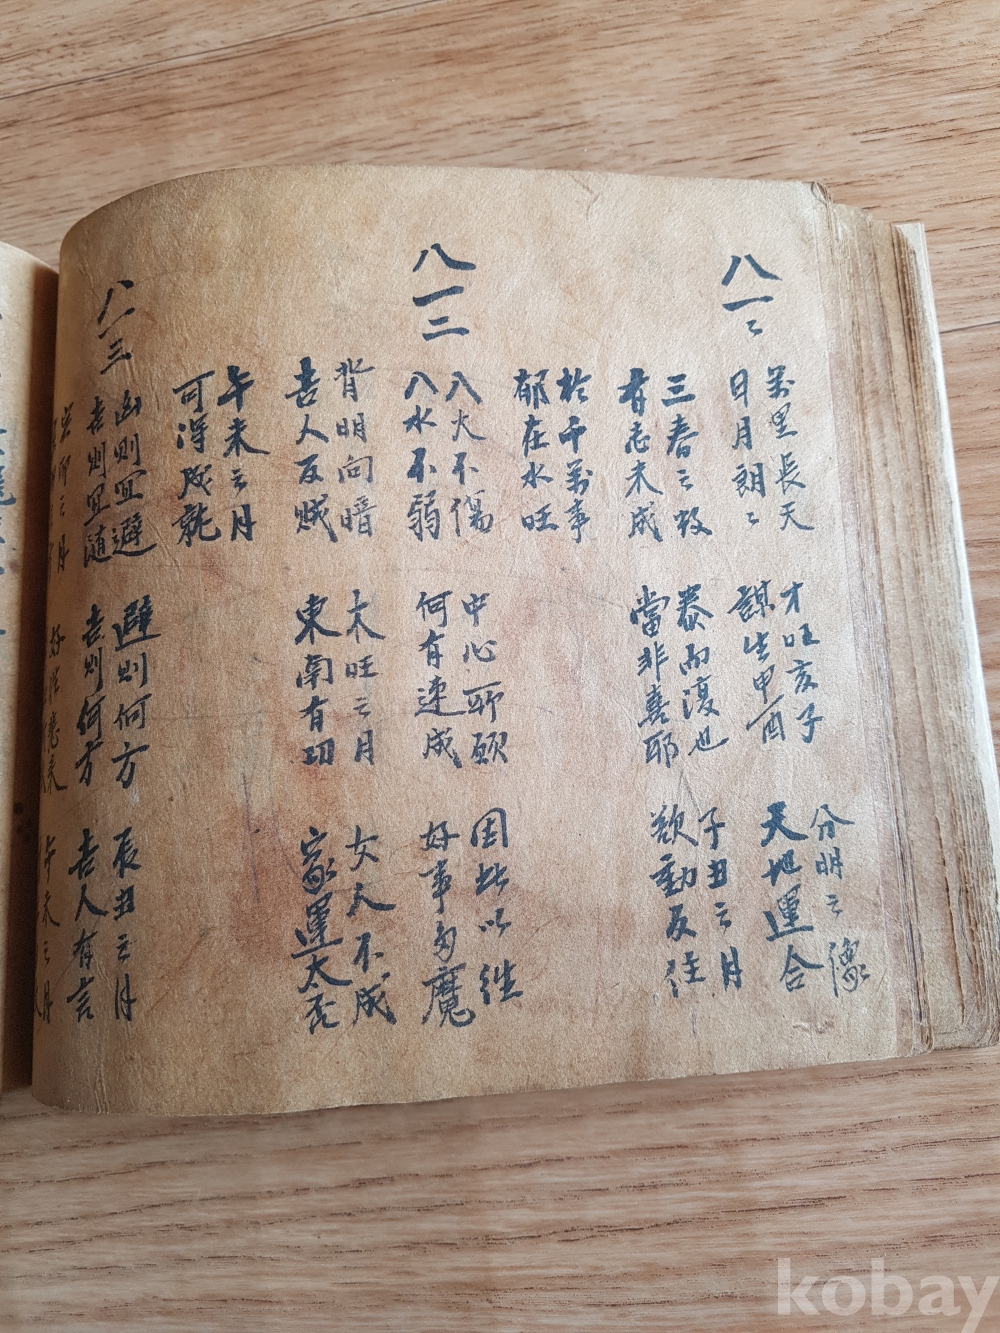 八一〻
萬里長天
日月朗〻
才旺亥子
謀生申酉
分明之像
天地運合
三春之
有志未成
而復也
當非喜耶
子丑之月
欲動反往
於千萬事
郁在水旺
八一二
入火不傷
入水不弱
中心所願
何有速成
因此以往
好事多魔
背明向暗
吉人反賊
木旺之月
東南有功
女大不成
家運太否
午未之月
可得成就
八一三
凶則宜避
吉則宜随
避則何方
吉則何方
辰丑之月
吉人有言
卯之月
好消息来
午未之月
kobay